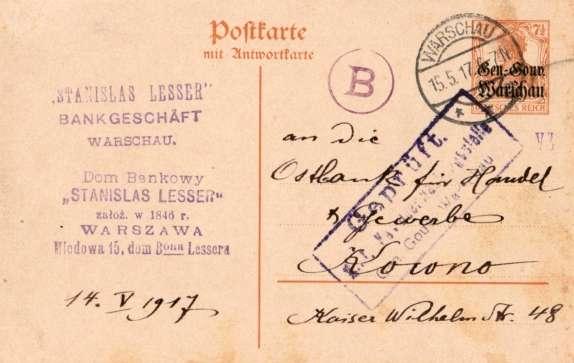 Postkarte
mit Antwortkarte
"STANISLAS LESSER"
BANKGESCHÄFT
WARSCHAU.
Dom Bankowy
„STANISLAS LESSER"
założ. w 1846 r.
WARSZAWA
Miodowa 15, dom Bona Lessera
14. V 1917
B
WARSCHAU
15.5.17
7½
Gen.-Gouv.
Warschau
DEUTSCHES REICH
VI
Geprüft.
an die
Ostbank für Handel
& Gewerbe
Kowno
Kaiser Wilhelm Str. 48